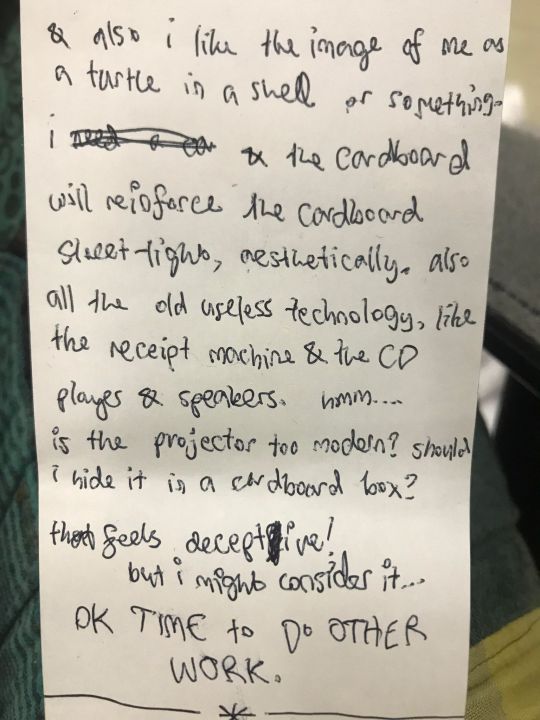 & also i like the image of me as
a turtle in a shell or something.
i need a ca & the cardboard
will reinforce the cardboard
street-lights, aesthetically. also
all the old useless technology, like
the receipt machine & the CD
player & speakers. hmm....
is the projector too modern? should
i hide it in a cardboard box?
that feels deceptive!
but i might consider it...
OK TIME to DO OTHER
WORK.